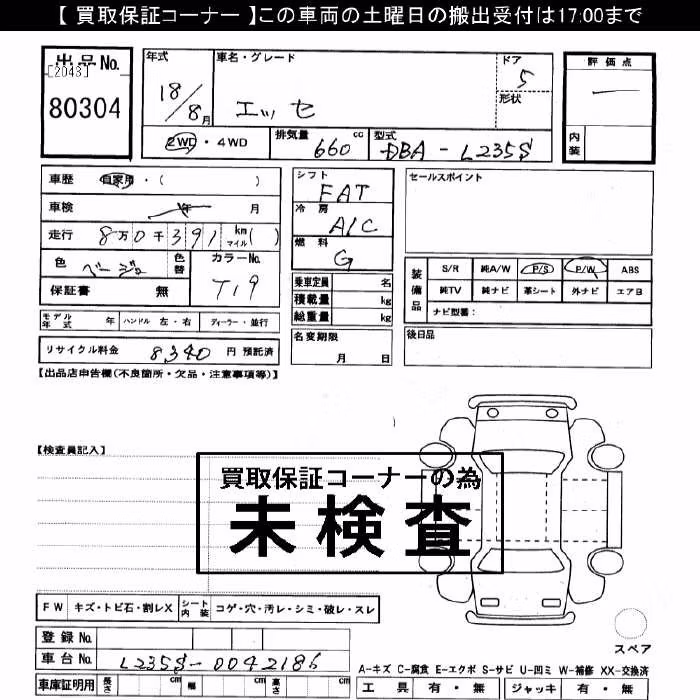 【 買取保証コーナー 】この車両の土曜日の搬出受付は17:00まで
出品No.
[2043]
80304
年式
18/8月
車名・グレード
エッセ
ドア
5
形状
2WD・4WD
排気量
660 cc
型式
DBA - L235S
評価点
内装
車歴 自家用・( )
車検 年 月
走行 8万0千391 km マイル( )
色 ベージュ 色替
カラーNo.
T19
保証書 無
モデル年式 年 ハンドル 左・右 ディーラー・並行
リサイクル料金 8340 円 預託済
シフト
FAT
冷房
A/C
燃料
G
乗車定員 名
積載量 kg
総重量 kg
名変期限
月 日
セールスポイント
装備品
S/R 純A/W P/S P/W ABS
純TV 純ナビ 革シート 外ナビ エアB
ナビ型番:
後日品
【出品店申告欄(不良箇所・欠品・注意事項等)】
【検査員記入】
買取保証コーナーの為
未検査
FW キズ・トビ石・割レX シート内装 コゲ・穴・汚レ・シミ・破レ・スレ
登録No.
車台No. L235S-0042186
車庫証明用 長さ cm 幅 cm 高さ cm
スペア
A-キズ C-腐食 E-エクボ S-サビ U-凹ミ W-補修 XX-交換済
工具 有・無 ジャッキ 有・無